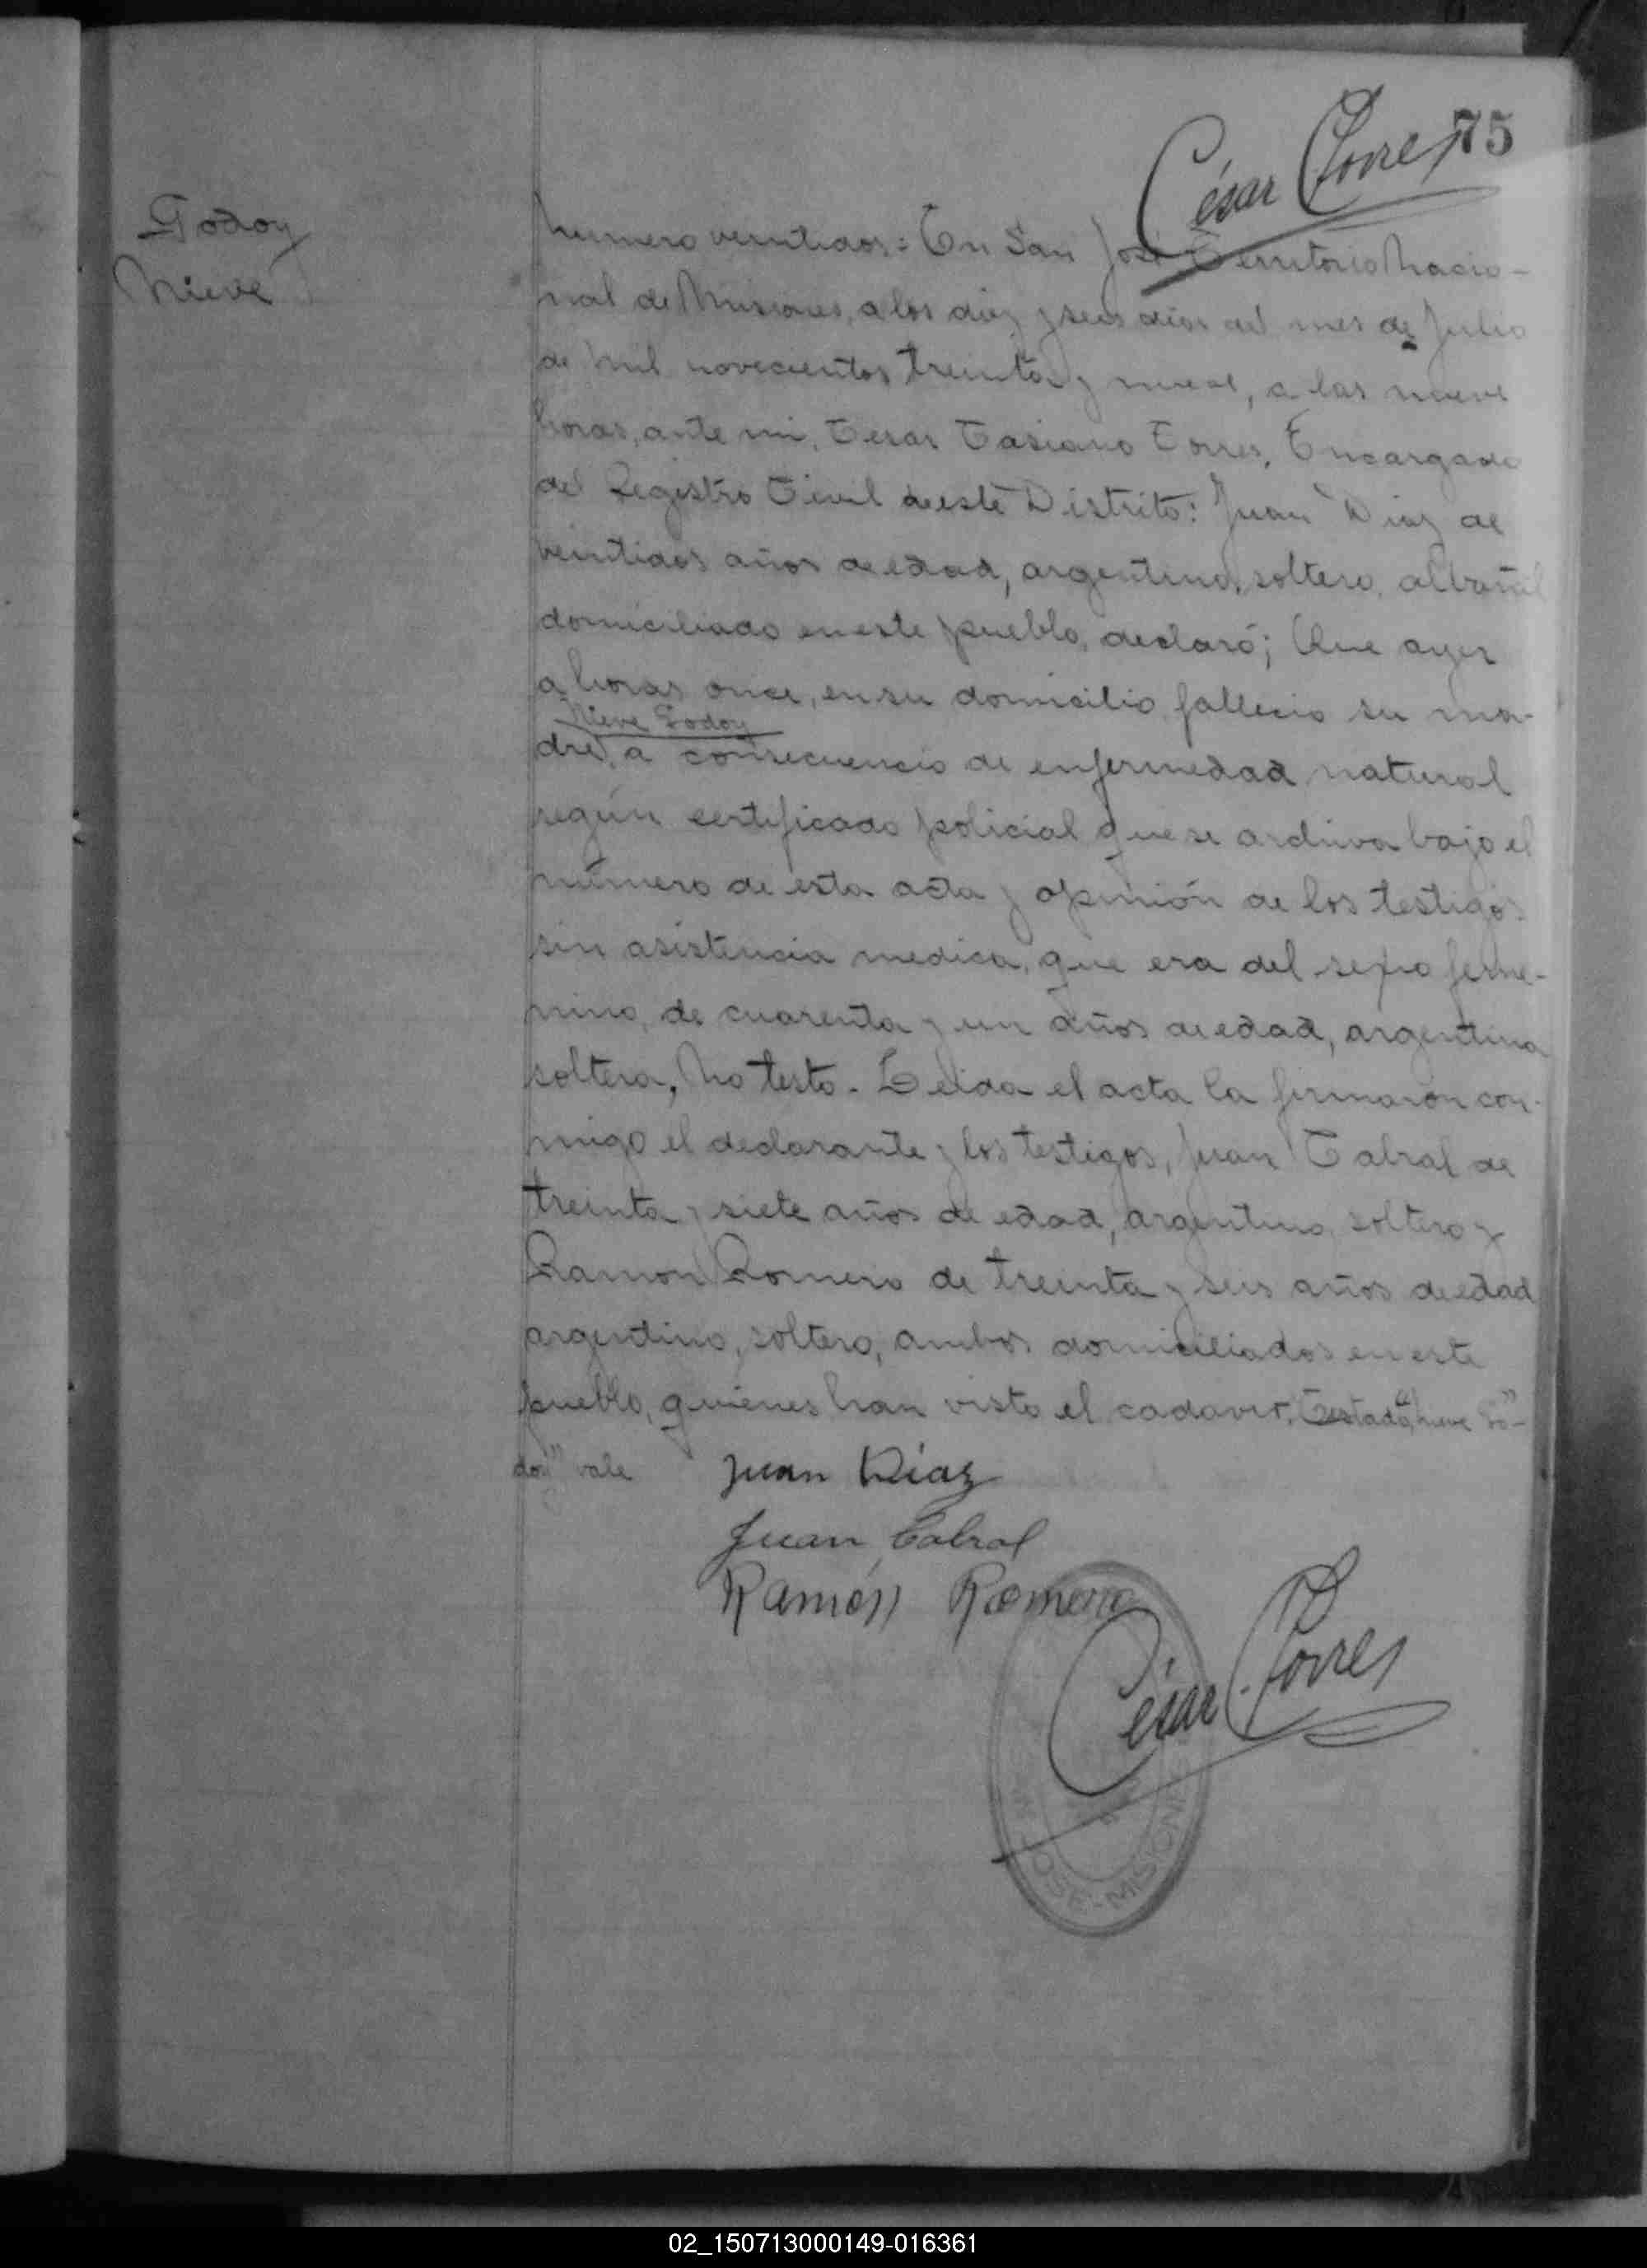 César Torres 75
Godoy
Nieve
Numero veintidos: En San José Territorio Nacio-
nal de Misiones, a los diez y seis dias del mes de Julio
de mil novecientos treinta y nueve, a las nueve
horas, ante mi, Cesar Casiano Torres, Encargado
del Registro Civil de este Distrito: Juan Diaz de
veintidos años de edad, argentino, soltero, albañil
domiciliado en este pueblo, declaró; Que ayer
a horas once, en su domicilio fallecio su ma-
Nieve Godoy
dre, a consecuencia de enfermedad natural
según certificado policial que se archiva bajo el
número de esta acta y opinión de los testigos
sin asistencia medica, que era del sexo feme-
nino, de cuarenta y un años de edad, argentina
soltera, No testo. Leida el acta la firmaron con-
migo el declarante y los testigos, Juan Cabral de
treinta y siete años de edad, argentino, soltero y
Ramon Romero de treinta y seis años de edad
argentino, soltero, ambos domiciliados en este
pueblo, quienes han visto el cadaver. "Nieve Go-
doy" vale Juan Diaz
Juan Cabral
Ramón Romero
César Torres
SAN JOSE - MISIONES
02_150713000149-016361